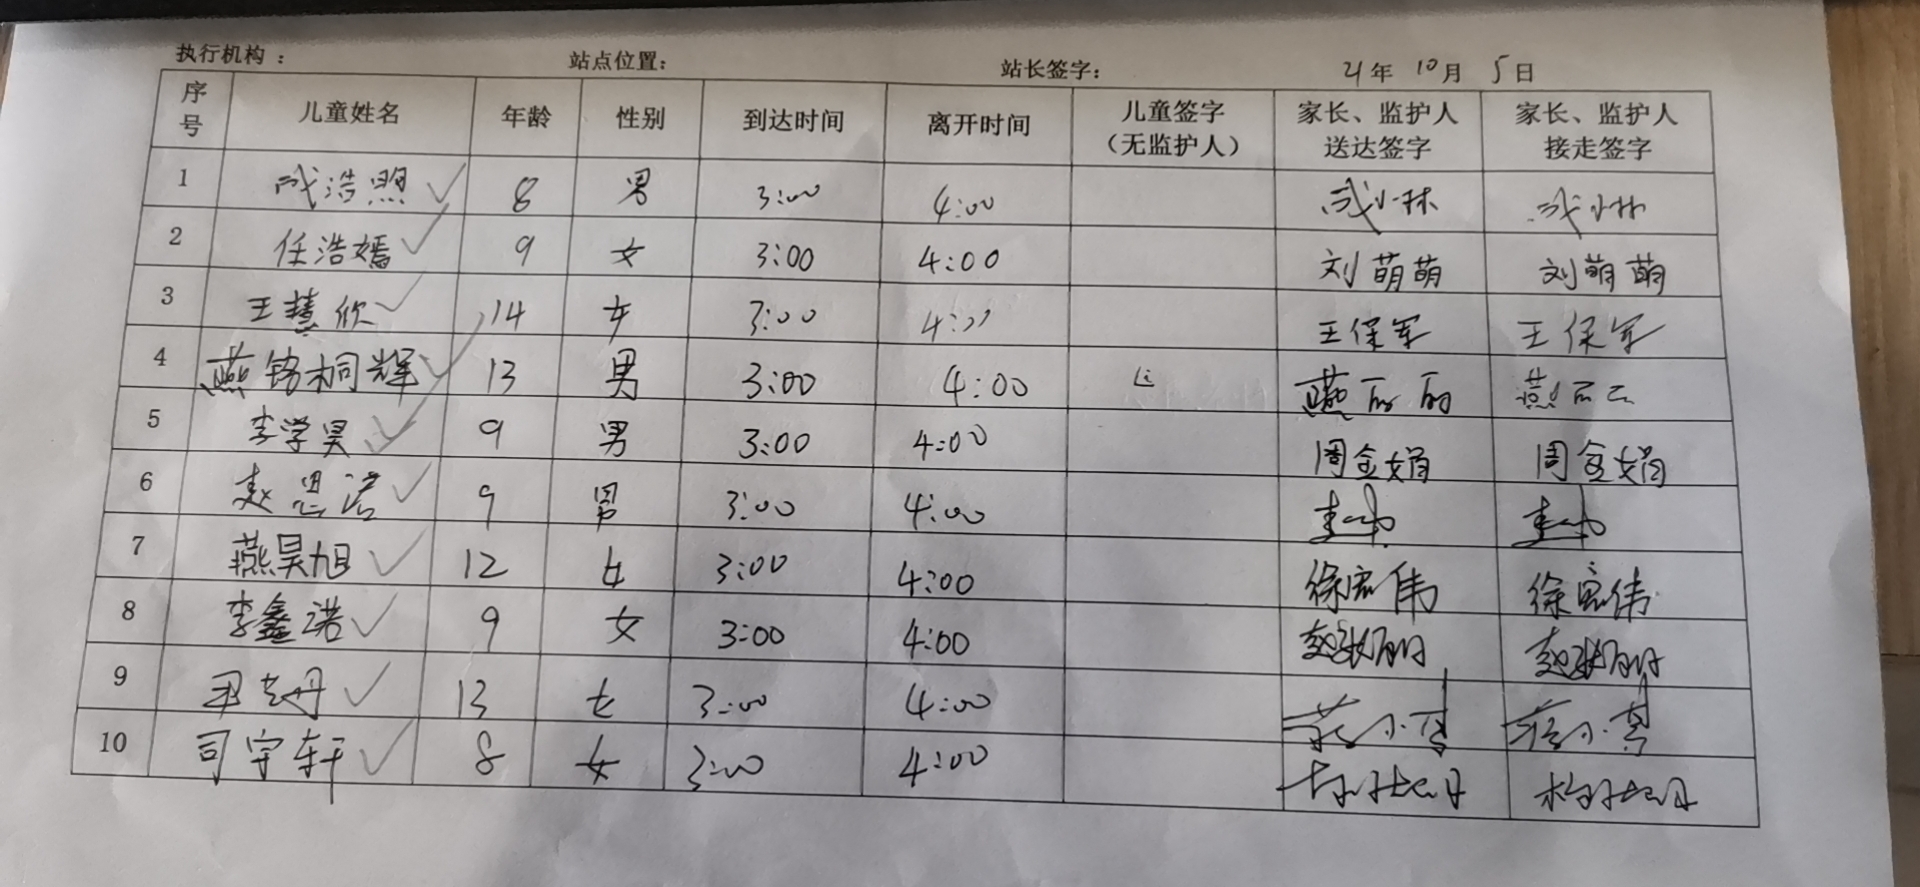 执行机构： 站点位置： 站长签字： 21年 10月 5日
序号 儿童姓名 年龄 性别 到达时间 离开时间 儿童签字（无监护人） 家长、监护人送达签字 家长、监护人接走签字
1 成浩照 ✓ 8 男 3:00 4:00 成小林 成小林
2 任浩嫣 ✓ 9 女 3:00 4:00 刘萌萌 刘萌萌
3 王慧欣 ✓ 14 女 3:00 4:00 王保军 王保军
4 燕铭桐辉 ✓ 13 男 3:00 4:00 燕丽丽 燕
5 李学昊 ✓ 9 男 3:00 4:00 周金娟 周金娟
6 赵思诺 ✓ 9 男 3:00 4:00
7 燕昊旭 ✓ 12 女 3:00 4:00 徐宏伟 徐宏伟
8 李鑫诺 ✓ 9 女 3:00 4:00
9 ✓ 13 女 3:00 4:00
10 司宇轩 ✓ 8 女 3:00 4:00